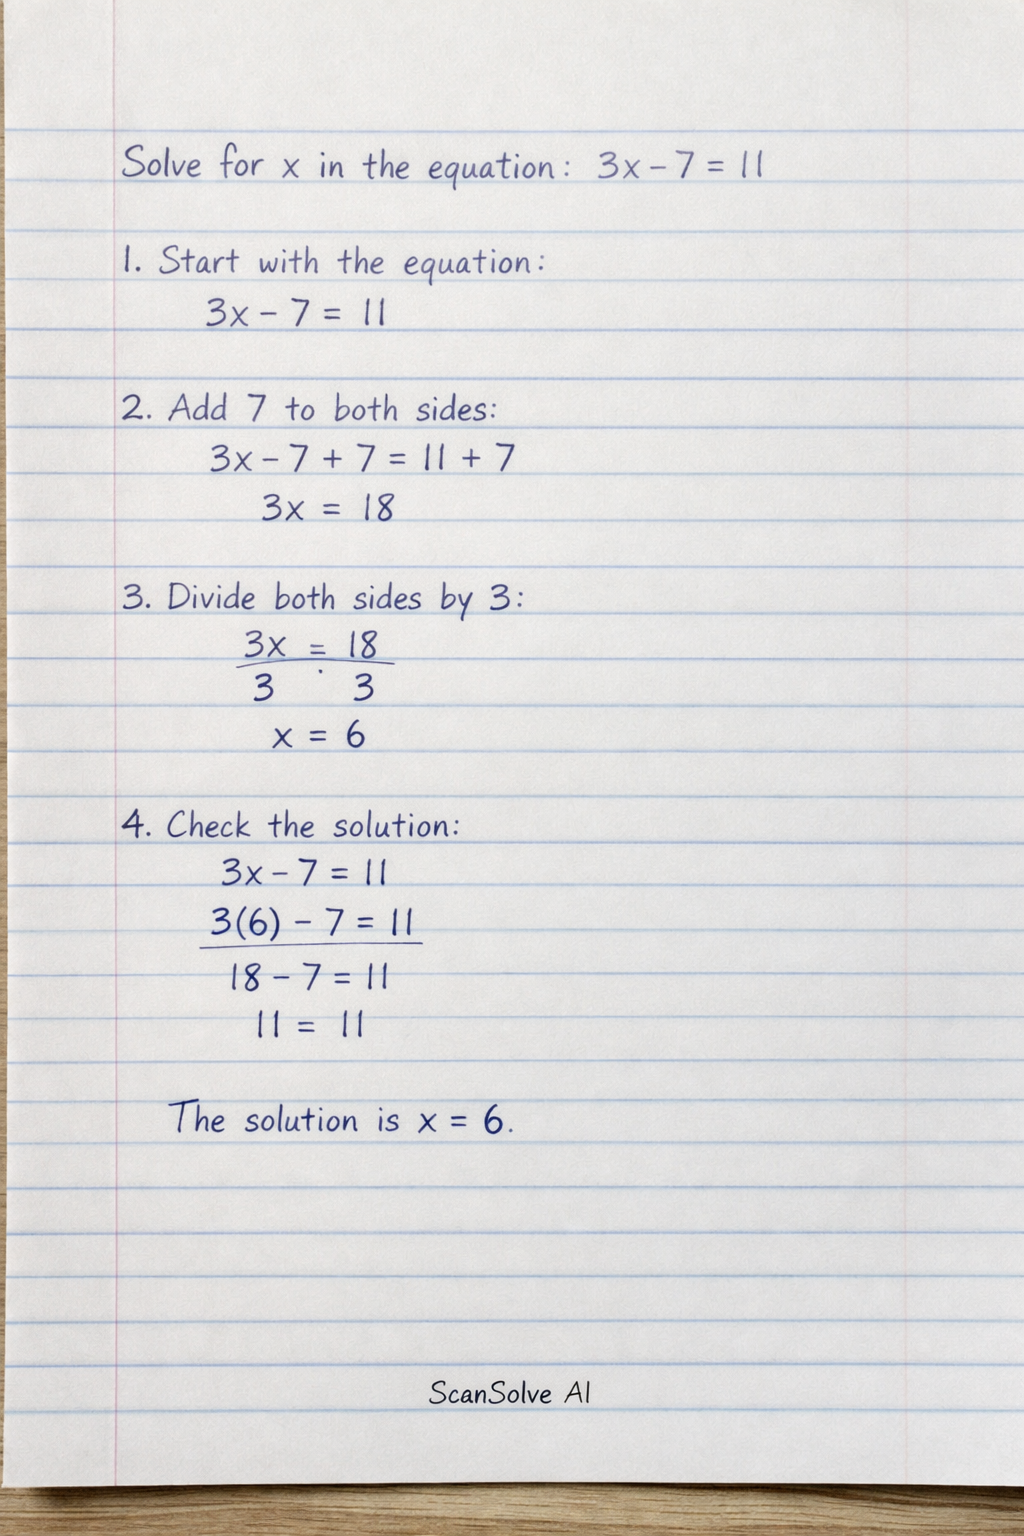 Solve for x in the equation: 3x - 7 = 11
1. Start with the equation:
3x - 7 = 11
2. Add 7 to both sides:
3x - 7 + 7 = 11 + 7
3x = 18
3. Divide both sides by 3:
3x = 18
3 3
x = 6
4. Check the solution:
3x - 7 = 11
3(6) - 7 = 11
18 - 7 = 11
11 = 11
The solution is x = 6.
ScanSolve AI